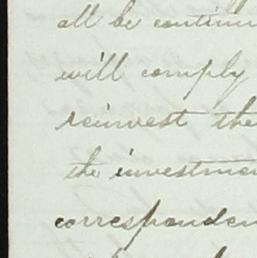 all be continu
will comply
reinvest the
the investmen
correspondenc